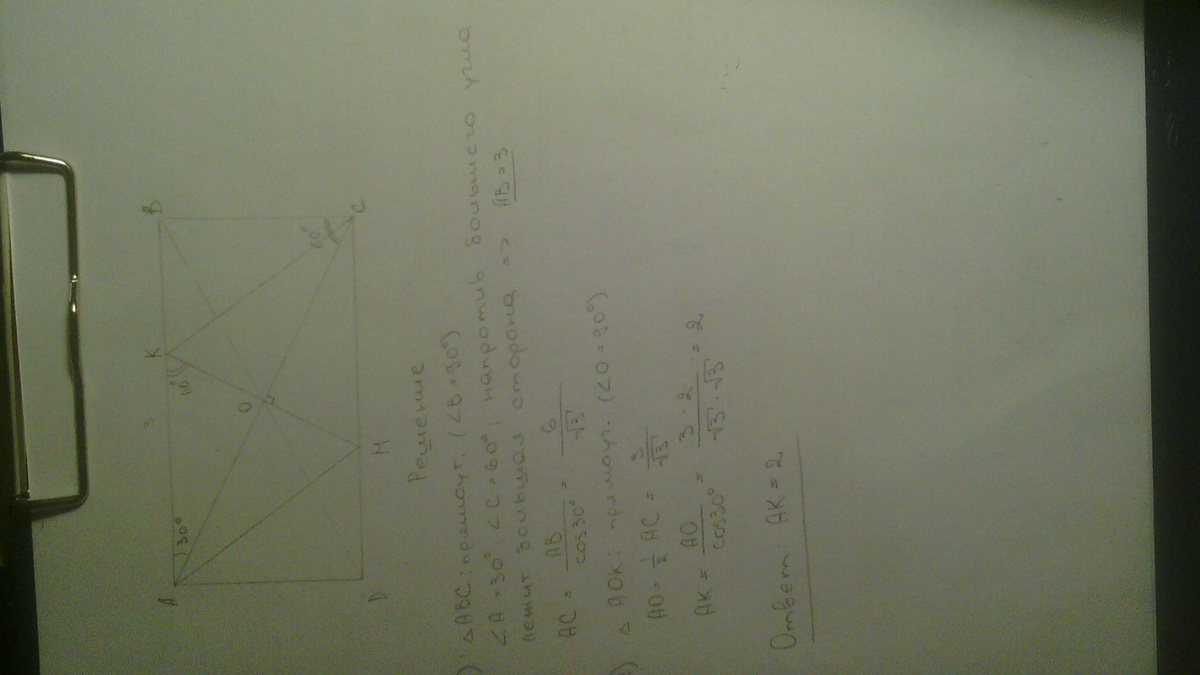 B
K
60°
60°
3
O
30°
A
C
M
D
Решение
) △ABC: прямоуг. (∠B = 90°)
∠A = 30° ∠C = 60°; напротив большего угла
лежит большая сторона => AB = 3
AC = AB/cos30° = 6/√3
) △ AOK: прямоуг. (∠O = 90°)
AO = 1/2 AC = 3/√3
AK = AO/cos30° = 3·2/√3·√3 = 2
Ответ: AK = 2